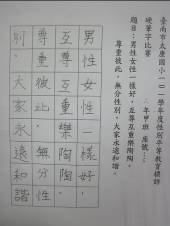 臺南市太康國小一○一學年度性別平等教育標語
硬筆字比賽
三年甲班 座號：
題目：男性女性一樣好，互尊互重樂陶陶，
尊重彼此，無分性別，大家永遠和諧。
男性女性一樣好，
互尊互重樂陶陶，
尊重彼此，無分性
別，大家永遠和諧